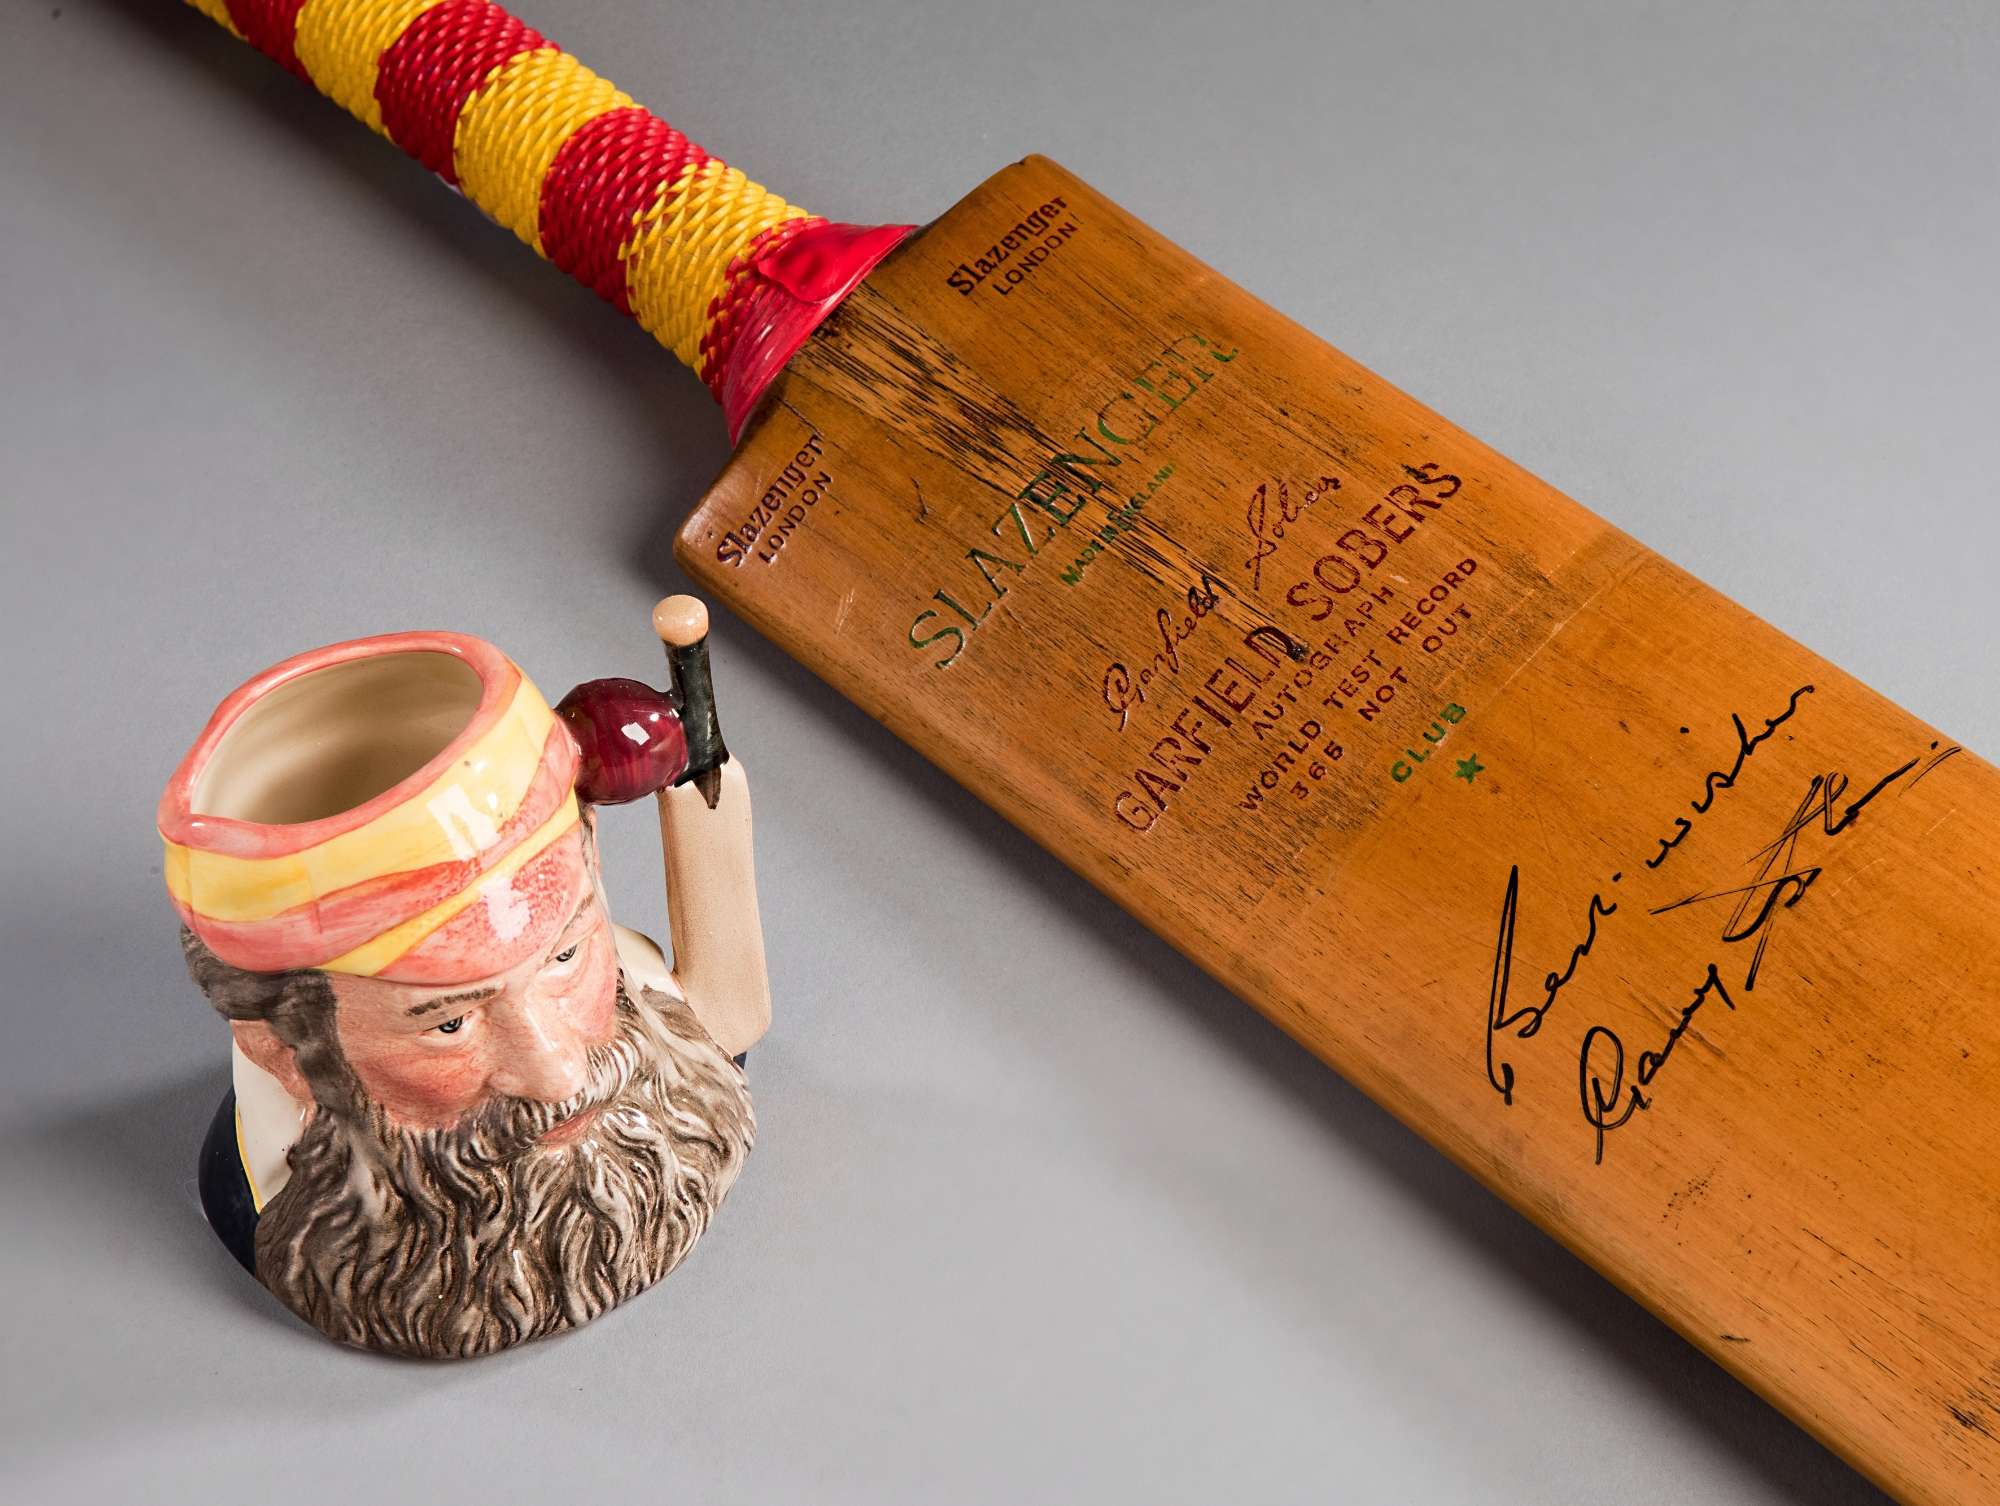 Slazenger
LONDON
Slazenger
LONDON
SLAZENGER
MADE IN ENGLAND
Garfield Sobers
GARFIELD SOBERS
AUTOGRAPH
WORLD TEST RECORD
365 NOT OUT
CLUB
Best wishes
Garry Sobers